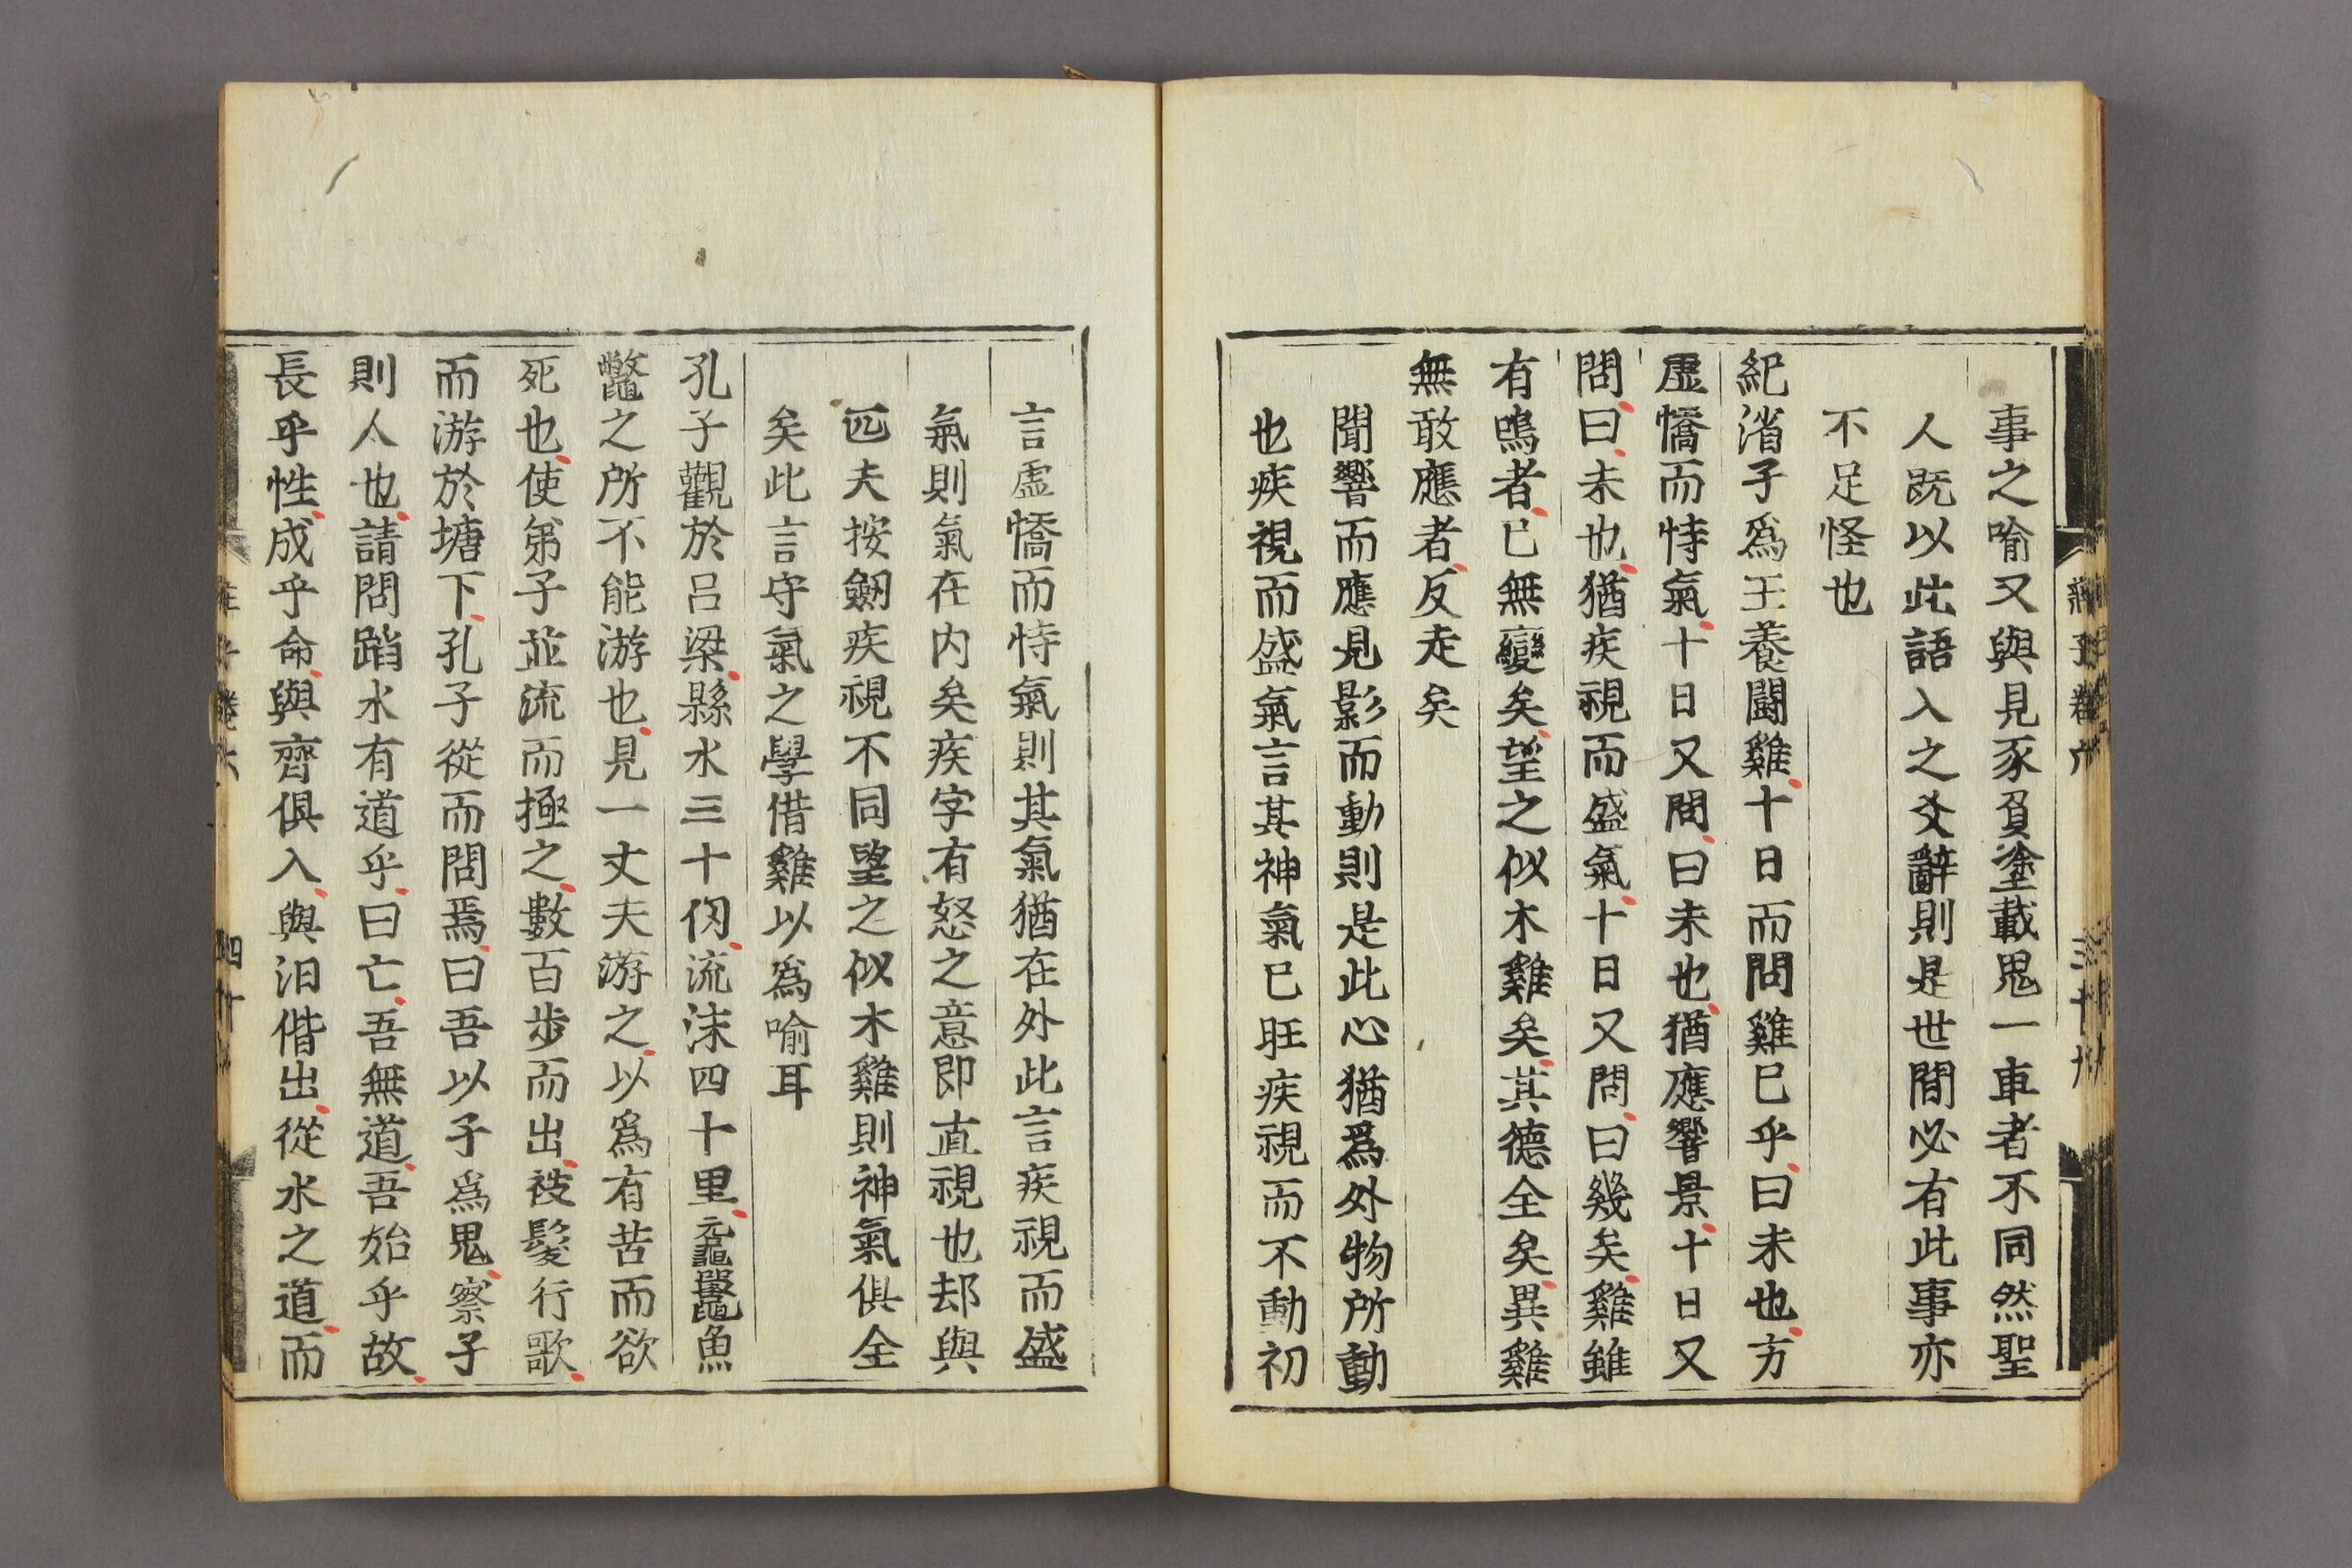 事之喻又與見豕負塗載鬼一車者不同然聖
人既以此語入之爻辭則是世間必有此事亦
不足怪也
紀渻子爲王養鬪雞十日而問雞已乎曰未也方
虛憍而恃氣十日又問曰未也猶應響景十日又
問曰未也猶疾視而盛氣十日又問曰幾矣雞雖
有鳴者已無變矣望之似木雞矣其德全矣異雞
無敢應者反走矣
聞響而應見影而動則是此心猶爲外物所動
也疾視而盛氣言其神氣已旺疾視而不動初
言虛憍而恃氣則其氣猶在外此言疾視而盛
氣則氣在内矣疾字有怒之意即直視也却與
匹夫按劒疾視不同望之似木雞則神氣俱全
矣此言守氣之學借雞以爲喻耳
孔子觀於吕梁縣水三十仞流沫四十里黿鼉魚
鼈之所不能游也見一丈夫游之以爲有苦而欲
死也使弟子並流而拯之數百步而出被髮行歌
而游於塘下孔子從而問焉曰吾以子爲鬼察子
則人也請問蹈水有道乎曰亡吾無道吾始乎故
長乎性成乎命與齊俱入與汨偕出從水之道而